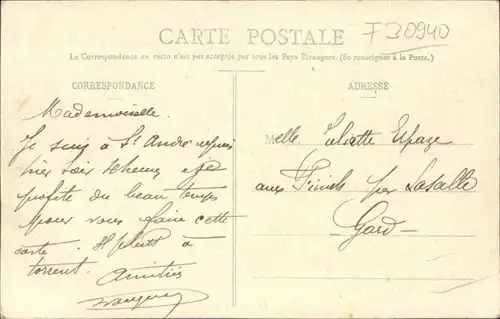 CARTE POSTALE
F30940
La Correspondance au recto n'est pas acceptée par tous les Pays Étrangers. (Se renseigner à la Poste.)
CORRESPONDANCE
Mademoiselle.
Je suis à St André depuis
hier soir 1 heure et je
profite du beau temps
pour vous faire cette
carte. Il pleut à
torrent. Amitiés
ADRESSE
Melle Juliette
aux par Lasalle
Gard